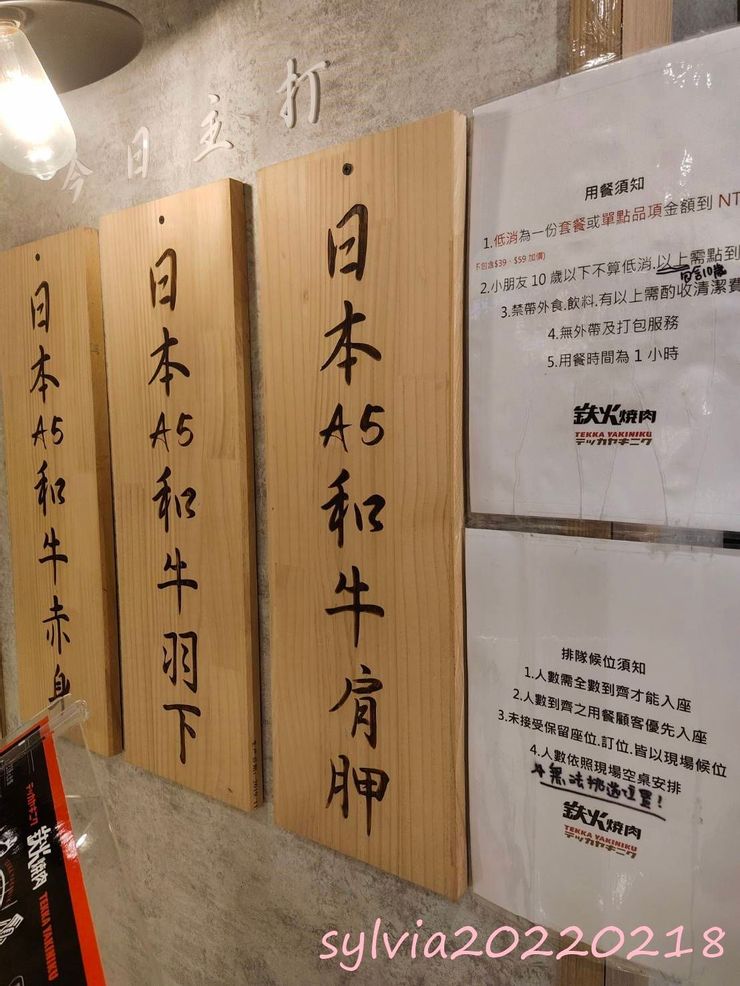 今日主打
日本A5和牛赤身
日本A5和牛羽下
日本A5和牛肩胛
用餐須知
1.低消為一份套餐或單點品項金額到 NT
不包含$39、$59 加價)
2.小朋友 10 歲以下不算低消.以上需點到
包含10歲
3.禁帶外食.飲料.有以上需酌收清潔費
4.無外帶及打包服務
5.用餐時間為 1 小時
鉄火焼肉
TEKKA YAKINIKU
テッカヤキニク
排隊候位須知
1.人數需全數到齊才能入座
2.人數到齊之用餐顧客優先入座
3.未接受保留座位.訂位.皆以現場候位
4.人數依照現場空桌安排
無法挑選位置!
鉄火焼肉
TEKKA YAKINIKU
テッカヤキニク
テッカヤキニク
鉄火焼肉
TEKKA YAKINIKU
sylvia20220218